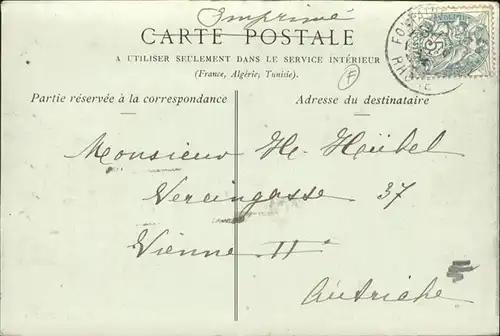 Imprimé
CARTE POSTALE
A UTILISER SEULEMENT DANS LE SERVICE INTÉRIEUR
(France, Algérie, Tunisie).
F
Partie réservée à la correspondance
Adresse du destinataire
Monsieur He. Heübel
Vereingasse 37
Vienne II
Autriche